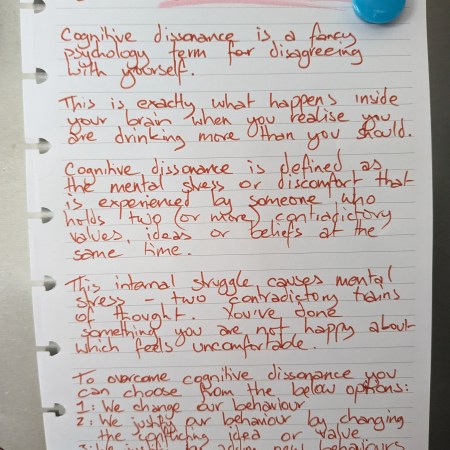 Cognitive dissonance is a fancy
psychology term for disagreeing
with yourself.
This is exactly what happens inside
your brain when you realise you
are drinking more than you should.
Cognitive dissonance is defined as
the mental stress or discomfort that
is experienced by someone who
holds two (or more) contradictory
values, ideas or beliefs at the
same time.
This internal struggle causes mental
stress - two contradictory trains
of thought. You've done
something you are not happy about
which feels uncomfortable.
To overcome cognitive dissonance you
can choose from the below options:
1: We change our behaviour
2: We justify our behaviour by changing
the conflicting idea or value
3: We justify by adding new behaviours